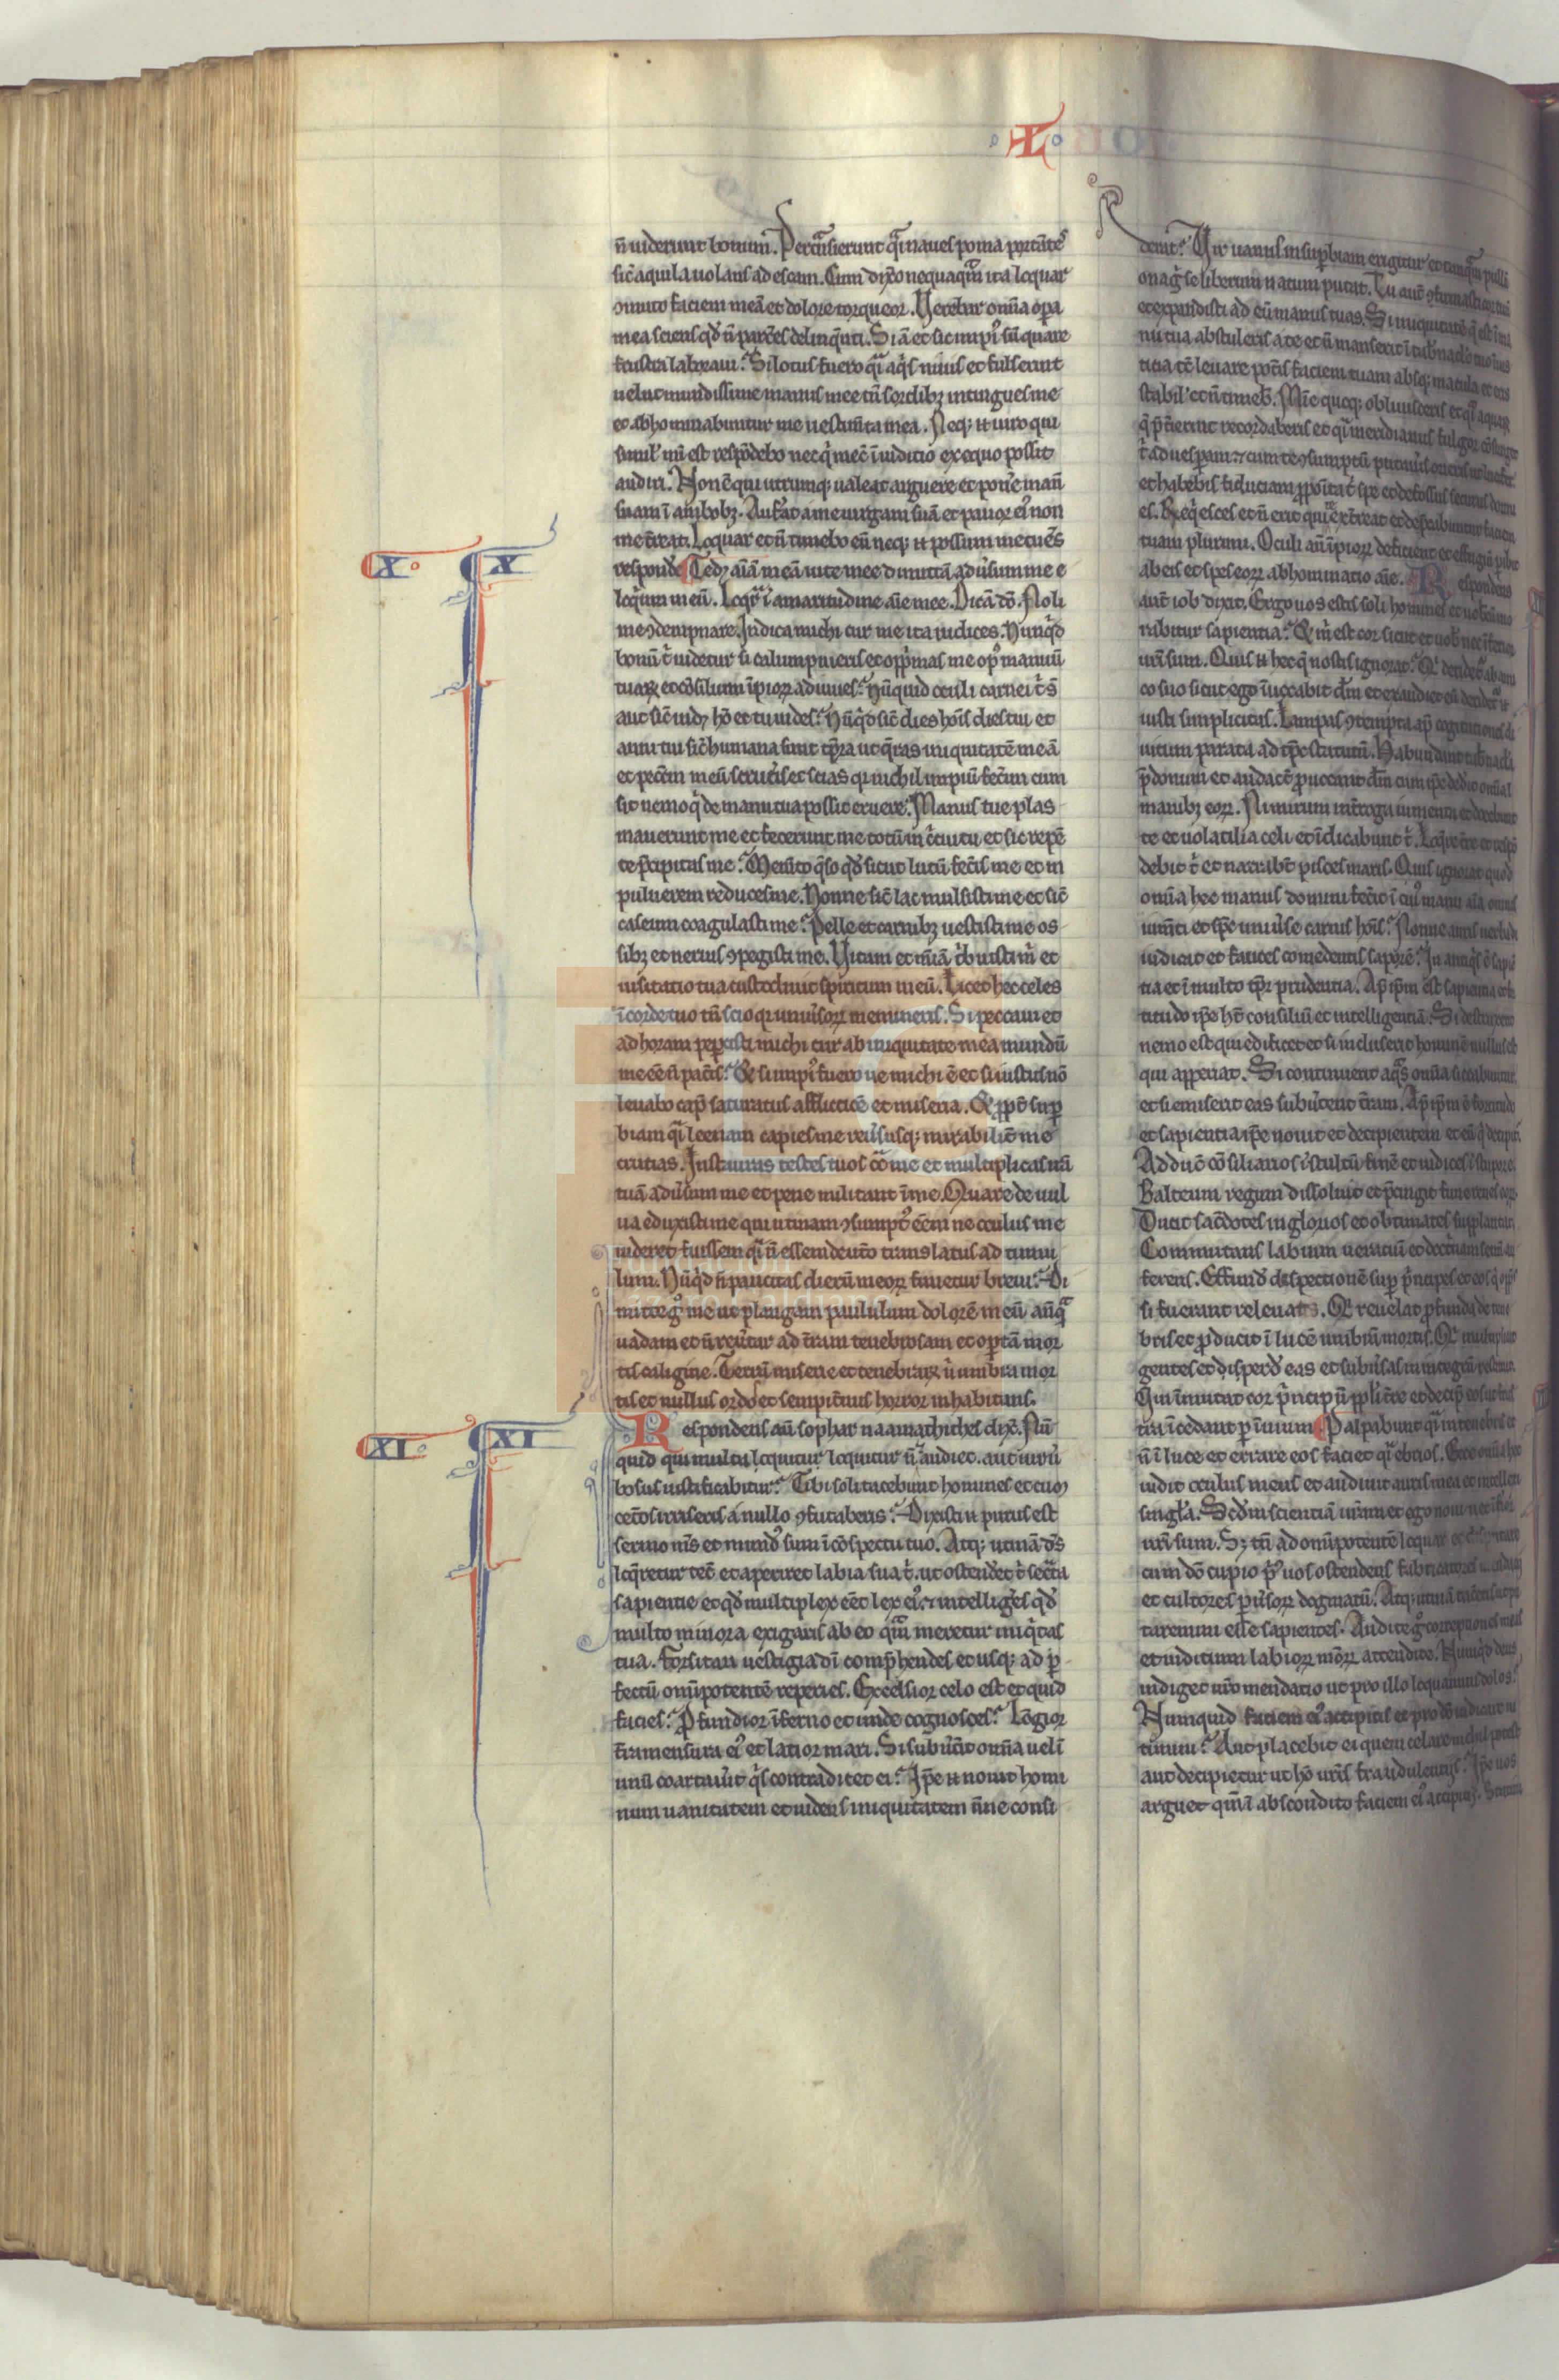 ·L·
n̄ uiderunt bonum. Pertͣnsierunt qͣi naues poma portātes
sic̄ aquila uolans ad escam. Cum dixͦo nequaqͣm ita loquar
ꝯmuto faciem meā et dolore torqueor. Verebar om̄a oꝑa
mea sciens qđ n̄ parc̄es delinq̄nti. Si ā et sic impiꝰ sū quare
frustra laboraui. Si lotus fuero qͣi aqͥs niuis et fulserint
uelut mundissime manus mee tn̄ sordibꝫ intingues me
et abhominabuntur me uestim̄ta mea. Neqꝫ .n. uiro qui
simul᷑ m̄ est respōdebo nec qͥ mec̄ ī iuditio ex equo possit
audiri. Non ē qui utrumqꝫ ualeat arguere et pon̄e manū
suam ī ambobꝫ. Auf̄at a me uirgam suā et pauor eiꝰ non
me t̄reat. Loquar et n̄ timebo eū neqꝫ .n. possum metuēs
respond̄e Tedꝫ aīā meā uite mee dimittā adūsum me e
loq̄um meū. Loqͣr ī amaritudine aīe mee. Dicā dō. Noli
me ꝯdempnare. Indica michi cur me ita iudices. Nunqͥd
bonū tͥ uidetur si calumpnieris et oppͥmas me opꝰ manuū
tuaꝝ et cōsilium īpioꝝ adiuues. Nūquid oculi carnei tͥ s̄
aut sic̄ uidꝫ hō et tu uides. Nūqͥd sic̄ dies hoīs dies tui et
anni tui sic̄ humana sunt tp̄ra ut q̄ras iniquitatē meā
et pecc̄m meū scrut̄is et scias qr nichil impiū fec̄im cum
sit nemo qͥ de manu tua possit eruere. Manus tue plas
mauerunt me et fecerunt me totū in cͥcuitu et sic repē
te p̄cipitas me. Mem̄to q̄so qđ sicut lutū fec̄is me et in
puluerem reduces me. Nonne sic̄ lac mulsisti me et sic̄
caseum coagulasti me. Pelle et carnibꝫ uestisti me os
sibꝫ et neruis ꝯpegisti me. Vitam et mīā tͥbuisti m̄ et
uisitatio tua custodiuit spiritum meū. Licet hec celes
ī corde tuo tn̄ scio qr uniūsoꝝ memineris. Si peccaui et
ad horam peꝑcisti michi cur ab iniquitate mea mundū
me ēe n̄ patͥis. Et si impiꝰ fuero ue michi ē et si iustus nō
leuabo cap̄ saturatus afflictiōe et miseria. Et ꝓpt̄ suꝑ
biam qͣi leenam capies me reūsusqꝫ mirabilit̄ me
crucias. Instauras testes tuos cͣ me et multiplicas irā
tuā adūsum me et pene militant ī me. Quare de uul
ua eduxisti me qui utinam ꝯsumptꝰ ēem ne oculus me
uideret fuissem qͣi n̄ essem de ut̄o translatus ad tumu
lum. Nūqͥd n̄ paucitas dierū meoꝝ finietur breui. Di
mitte gͦ me ut plangam paululum dolorē meū anͣqͣ
uadam et n̄ reūtar ad t̄ram tenebrosam et oꝑtā mor
tis caligine. Terrā miserie et tenebraꝝ ū umbra mor
tis et nullus ordo et sempit̄nus horror inhabitans.
·X· X
Respondens aū sophar naamathithes dix̄. Nū
quid qui multa loquitur loquitur n̄ᷓ audiet. aut uir ū
bosus iustificabitur. Tibi soli tacebunt homines et cum
cet̄os irriseris a nullo ꝯfutaberis. Dixisti .n. purus est
sermo mīs et mundꝰ sum ī cōspectu tuo. Atqꝫ utinā dꝰs
loq̄retur tec̄ et aperiret labia sua tͥ. ut ostend̄et tͥ sec̄ta
sapientie et qđ multiplex eēt lex eiꝰ ⁊ intelliḡes qđ
multo minora exigaris ab eo qͣm meretur iniqͥtas
tua. Forsitan uestigia dī comp̄hendes et usqꝫ ad ꝑ
fectū om̄ipotentē reperies. Excelsior celo est et quid
facies. Ꝓfundior īferno et unde cognosces. Lōgior
t̄ra mensura eiꝰ et latior mari. Si subūt̄it om̄a uel ī
unū coartaūit qͥs contradicet ei. Ip̄e .n. nouit homi
num uanitatem et uidens iniquitatem n̄ne consi
·XI· XI
derat. Vir uanus in suꝑbiam erigitur et tanqͣm pulli
onagͥ se liberum natum putat. Tu aut̄ ꝯfirmasti cor tuū
et expandisti ad eū manus tuas. Si iniquitatē q̄ est ī ma
nu tua abstuleris a te et n̄ manserit ī tab̄naclo tuo īius
ticia tc̄ leuare pot̄is faciem tuam absqꝫ macula et eris
stabil᷑ et n̄ timeb̄. Mis̄ie quoqꝫ obliuisceris et qͣi aquaꝝ
q̄ p̄t̄ierint recordaberis et qͣi meridianus fulgor cōsurget
tͥ ad uesꝑam ⁊ cum te ꝯsumptū putaūis orieris ut lucif̄.
et habebis fiduciam ꝓpoīta tͥ spe et defossus securus dormi
es. Reqͥesces et n̄ erit qui te ext̄reat et dep̄cabuntur faciem
tuam plurimi. Oculi aū īpioꝝ deficient et effugiū ꝑibit
ab eis et spes eoꝝ abhominatio aīe. Respondens
aut̄ iob dixit. Ergo uos estis soli homines et uobiscū mo
rietur sapientia. Et m̄ est cor sicut et uob̄ nec īferior
urī sum. Quis .n. hec q̄ nostis ignorat. Qͥ deridet᷑ ab ami
co suo sicut ego īuocabit dm̄ et exaudiet eū deridet᷑ .n.
iusti simplicitas. Lampas ꝯtempta apͩ cogitationes di
uitum parata ad tp̄s statutū. Habundant tab̄nacla
p̄donum et audact̄ ꝓuocant dm̄ cum ip̄e ded̄it om̄a ī
manibꝫ eoꝝ. Nimirum int̄roga iumenta et docebunt
te et uolatilia celi et īdicabunt tͥ. Loq̄re t̄re et respō
debit tͥ et narrabt̄ pisces maris. Quis ignorat quod
om̄ia hec manus domini fec̄it ī cuiꝰ manu aīa omīs
uiuētis et sp̄s uniūse carnis hoīs. Nonne auris uerba di
iudicat et fauces comedentis saporē. In antiqͥs ē sapiē
tia et ī multo tp̄r prudentia. Ap̄ ip̄m est sapientia et for
titudo ip̄e ht̄ consiliū et intelligentiā. Si destruxerit
nemo est qui edificet et si incluserit hominē nullus est
qui apperiat. Si continuerit aqͣs om̄ia siccabuntur
et si emiserit eas subūtent t̄ram. Ap̄ ip̄m ē fortitudo
et sapientia ip̄e nouit et decipientem et eū qͥ decipitͥ.
Adduc̄ cōsiliarios ī stultū finē et iudices ī stuporē.
Balteum regum dissoluit et p̄cingit fune renes eoꝝ.
Ducit sac̄dotes inglorios et obtimates supplantat.
Commutans labium ueratiū et doctͥnam senū au
ferens. Effundͥ despectionē suꝑ pͥncipes et eos qͥ opp̄s
si fuerant releuans. Qͥ reuelat ꝓfunda de tene
bris et ꝓducit ī lucē umbrā mortis. Qͥ multiplicat
gentes et disperdͥ eas et subūsas in integrū restituit.
Qui īmutat cor pͥncipū ppl̄i t̄re et decip̄ eos ut frus
tra īcedant ꝑ īuium Palpabunt qͣi in tenebris et
n̄ ī luce et errare eos faciet qͣi ebrios. Ecce om̄ia hec
uidit oculus meus et audiuit auris mea et intellexi
singl᷑a. Scd̄m scientiā uram et ego noui nec īferior
urī sum. Sꝫ tn̄ ad om̄ipotentē loquar et disputare
cum dō cupio pͥꝰ uos ostendens fabricatores mendacii
et cultores ꝑūsoꝝ dogmatū. Atqꝫ utinā tac̄etis ut pu
taremini esse sapientes. Audite gͦ correptiones meas
et iuditium labioꝝ mōꝝ attendite. Nunqͥd deus
indiget uro mendatio ut pro illo loquamini dolos.
Numquid faciem eiꝰ accipitis et pro dō iudicare ni
timini. Aut placebit ei quem celare nichil potest
aut decipietur ut hō uris fraudulentiis. Ip̄e uos
arguet qm̄ ī abscondito faciem eiꝰ accipitis. Statim